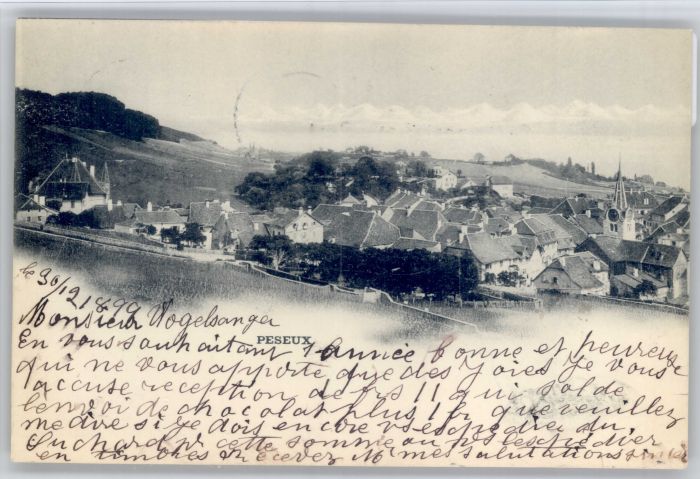 le 30/12 1899
Monsieur Vogelsanger
PESEUX
En vous souhaitant 1 année bonne et heureuse
qui ne vous apporte que des joies Je vous
accuse reception de frs 11 qui solde
lenvoi de chocolat plus 1 fr que veuillez
me dire si Je dois encore vs expedier du
Suchard pr cette somme ou vs lexpédier
en timbres Recevez M mes salutations